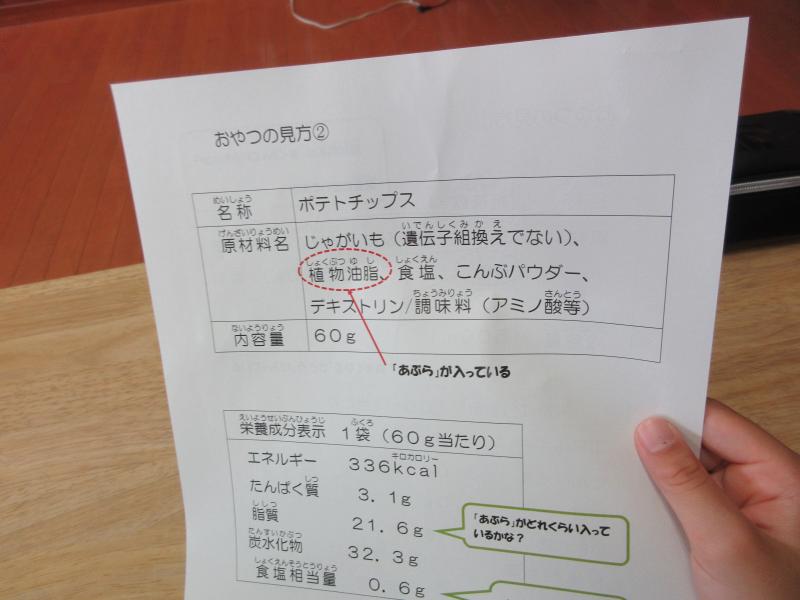 おやつの見方②
めいしょう
名称 ポテトチップス
げんざいりょうめい いでんしくみかえ
原材料名 じゃがいも（遺伝子組換えでない）、
しょくぶつゆし しょくえん
植物油脂、食塩、こんぶパウダー、
ちょうみりょう さんとう
デキストリン/調味料（アミノ酸等）
ないようりょう
内容量 60g
「あぶら」が入っている
えいようせいぶんひょうじ ふくろ
栄養成分表示 1袋（60g当たり）
キロカロリー
エネルギー 336kcal
しつ
たんぱく質 3.1g
ししつ
脂質 21.6g
「あぶら」がどれくらい入って
いるかな？
たんすいかぶつ
炭水化物 32.3g
しょくえんそうとうりょう
食塩相当量 0.6g